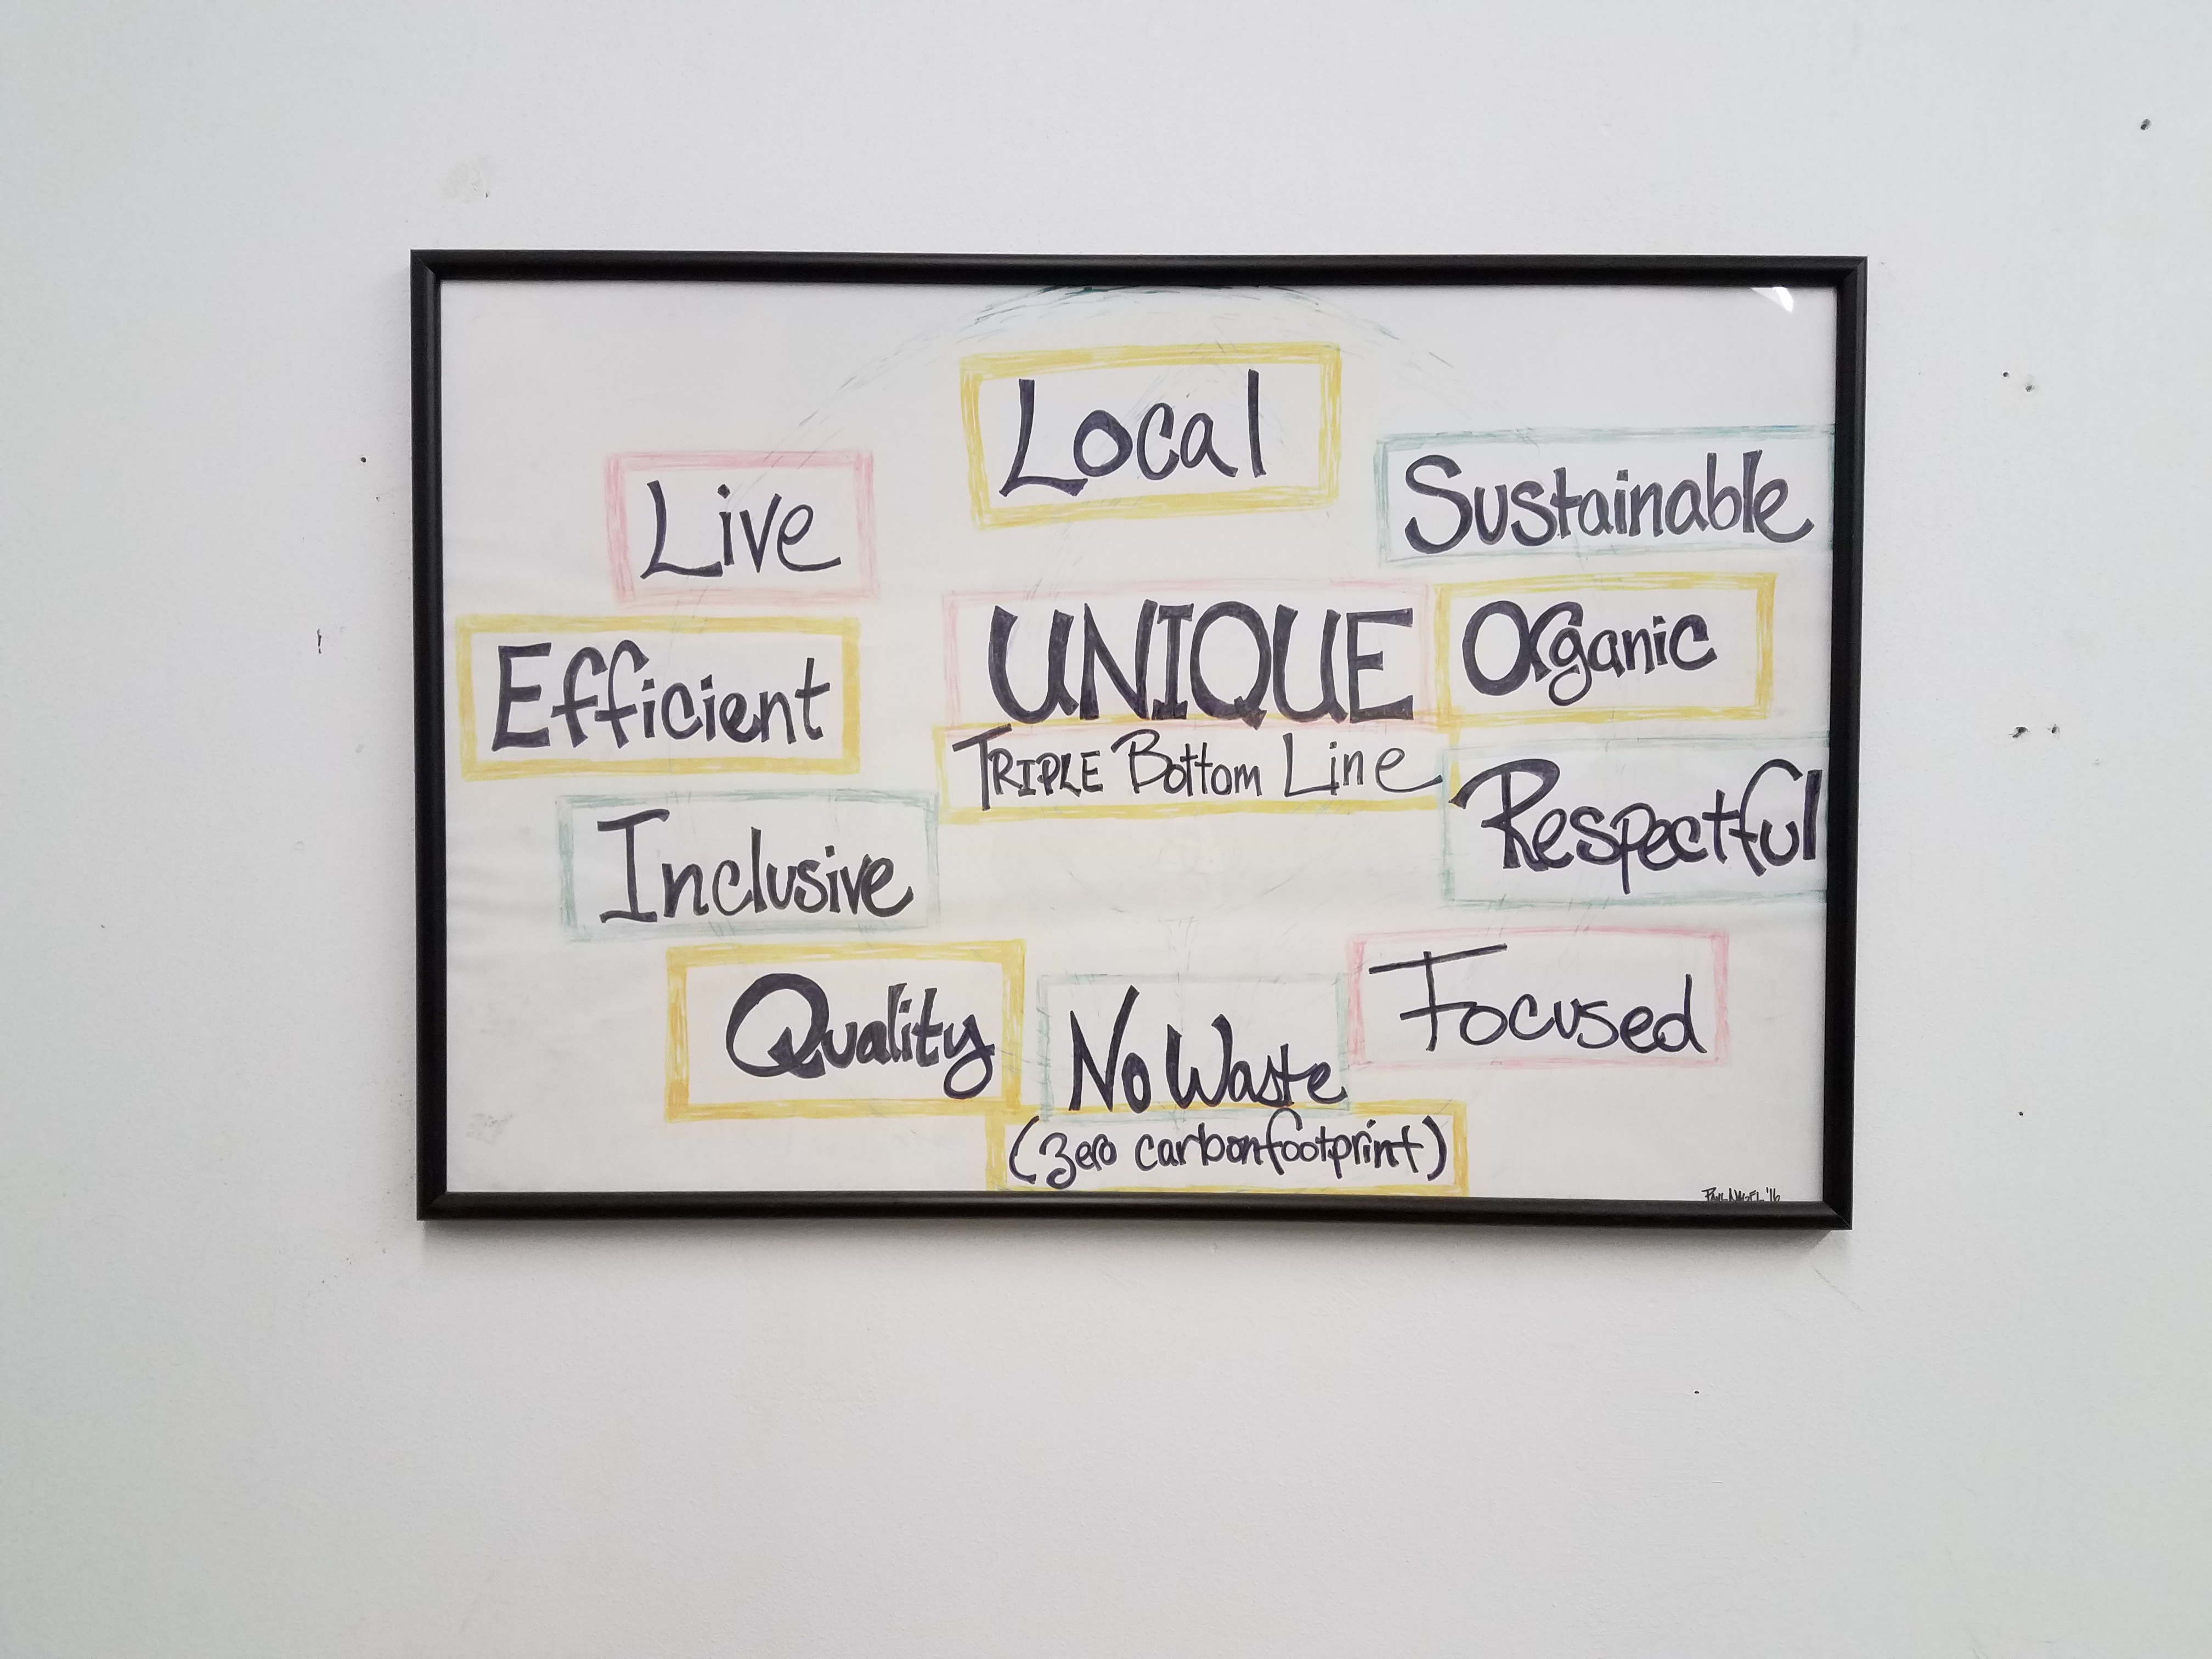 Local
Live
Sustainable
UNIQUE
Organic
Efficient
TRIPLE Bottom Line
Respectful
Inclusive
Focused
Quality
No Waste
(zero carbon footprint)
PAUL NAGEL '16